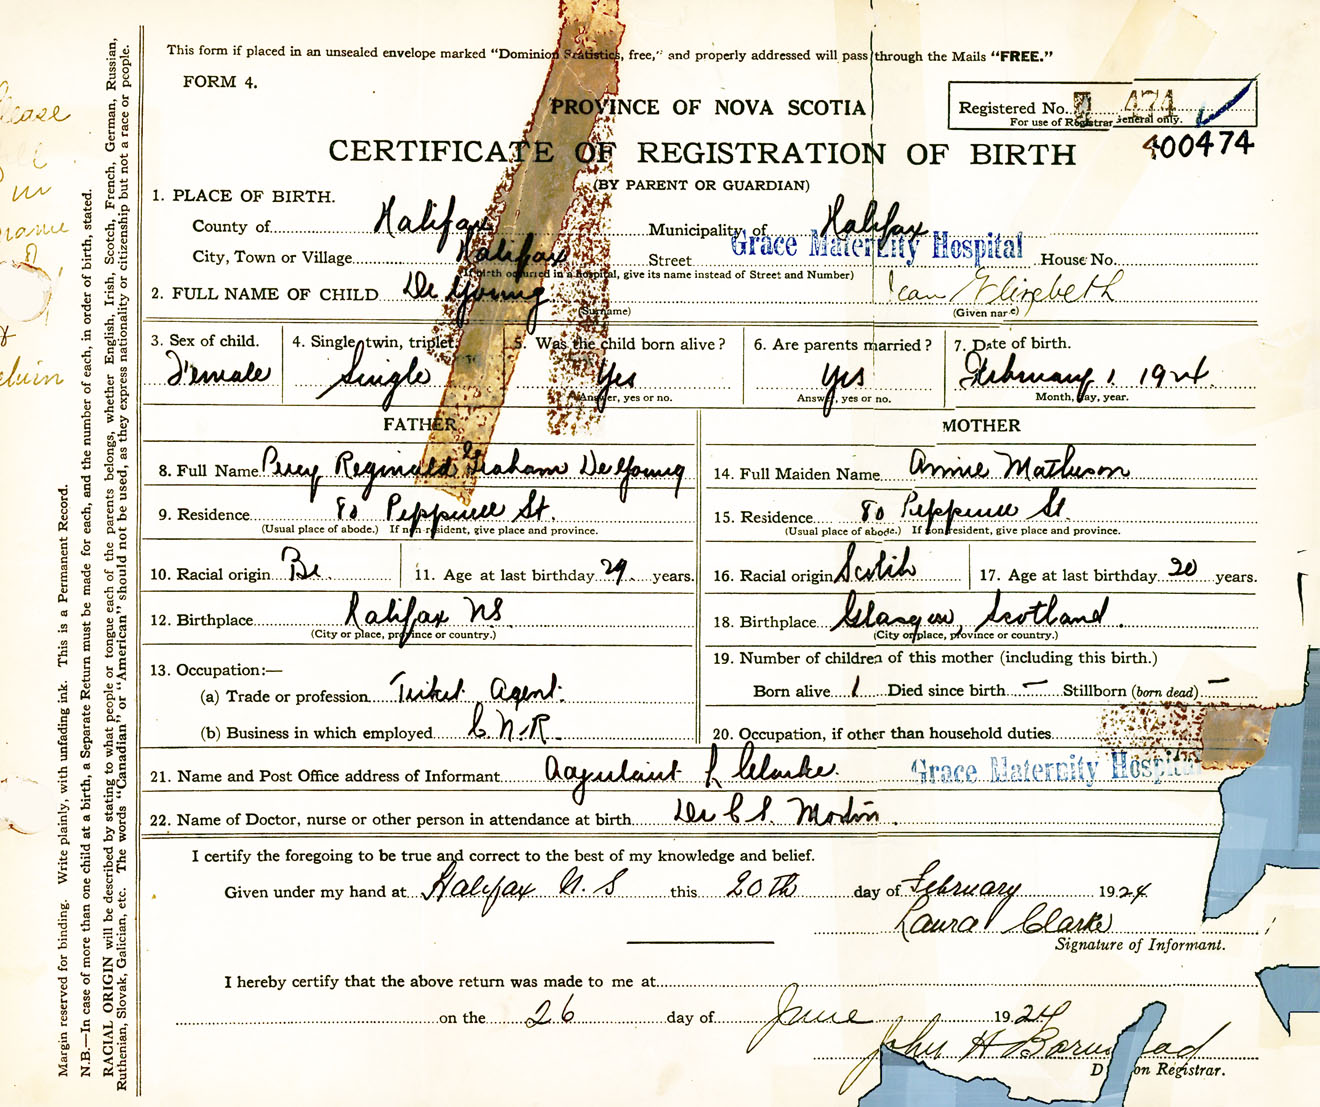 This form if placed in an unsealed envelope marked "Dominion Statistics, free," and properly addressed will pass through the Mails "FREE."
FORM 4.
PROVINCE OF NOVA SCOTIA
Registered No. 474
For use of Registrar General only.
400474
CERTIFICATE OF REGISTRATION OF BIRTH
(BY PARENT OR GUARDIAN)
1. PLACE OF BIRTH.
County of Halifax Municipality of Halifax
City, Town or Village Halifax Street Grace Maternity Hospital House No.
(If birth occurred in a hospital, give its name instead of Street and Number)
2. FULL NAME OF CHILD De Young Jean Elizebeth
(Surname) (Given name)
3. Sex of child. 4. Single, twin, triplet 5. Was the child born alive? 6. Are parents married? 7. Date of birth.
Female Single Yes Yes February 1 1924.
Answer, yes or no. Answer, yes or no. Month, day, year.
FATHER MOTHER
8. Full Name Percy Reginald Graham De Young 14. Full Maiden Name Annie Matheson
9. Residence 80 Pepperell St. 15. Residence 80 Pepperell St.
(Usual place of abode.) If non-resident, give place and province. (Usual place of abode.) If non resident, give place and province.
10. Racial origin Br. 11. Age at last birthday 29. years. 16. Racial origin Scotch 17. Age at last birthday 20 years.
12. Birthplace Halifax NS 18. Birthplace Glasgow, Scotland.
(City or place, province or country.) (City or place, province or country.)
13. Occupation:— 19. Number of children of this mother (including this birth.)
(a) Trade or profession Ticket Agent. Born alive 1 Died since birth — Stillborn (born dead) —
(b) Business in which employed C.N.R. 20. Occupation, if other than household duties
21. Name and Post Office address of Informant Adjutant L Clarke. Grace Maternity Hospital
22. Name of Doctor, nurse or other person in attendance at birth Dr C S. Morton.
I certify the foregoing to be true and correct to the best of my knowledge and belief.
Given under my hand at Halifax N. S this 20th day of February 1924
Laura Clarke
Signature of Informant.
I hereby certify that the above return was made to me at
on the 26 day of June 1924
John H
D on Registrar.
Margin reserved for binding. Write plainly, with unfading ink. This is a Permanent Record.
N.B.—In case of more than one child at a birth, a Separate Return must be made for each, and the number of each, in order of birth, stated.
RACIAL ORIGIN will be described by stating to what people or tongue each of the parents belongs, whether English, Irish, Scotch, French, German, Russian,
Ruthenian, Slovak, Galician, etc. The words "Canadian" or "American" should not be used, as they express nationality or citizenship but not a race or people.